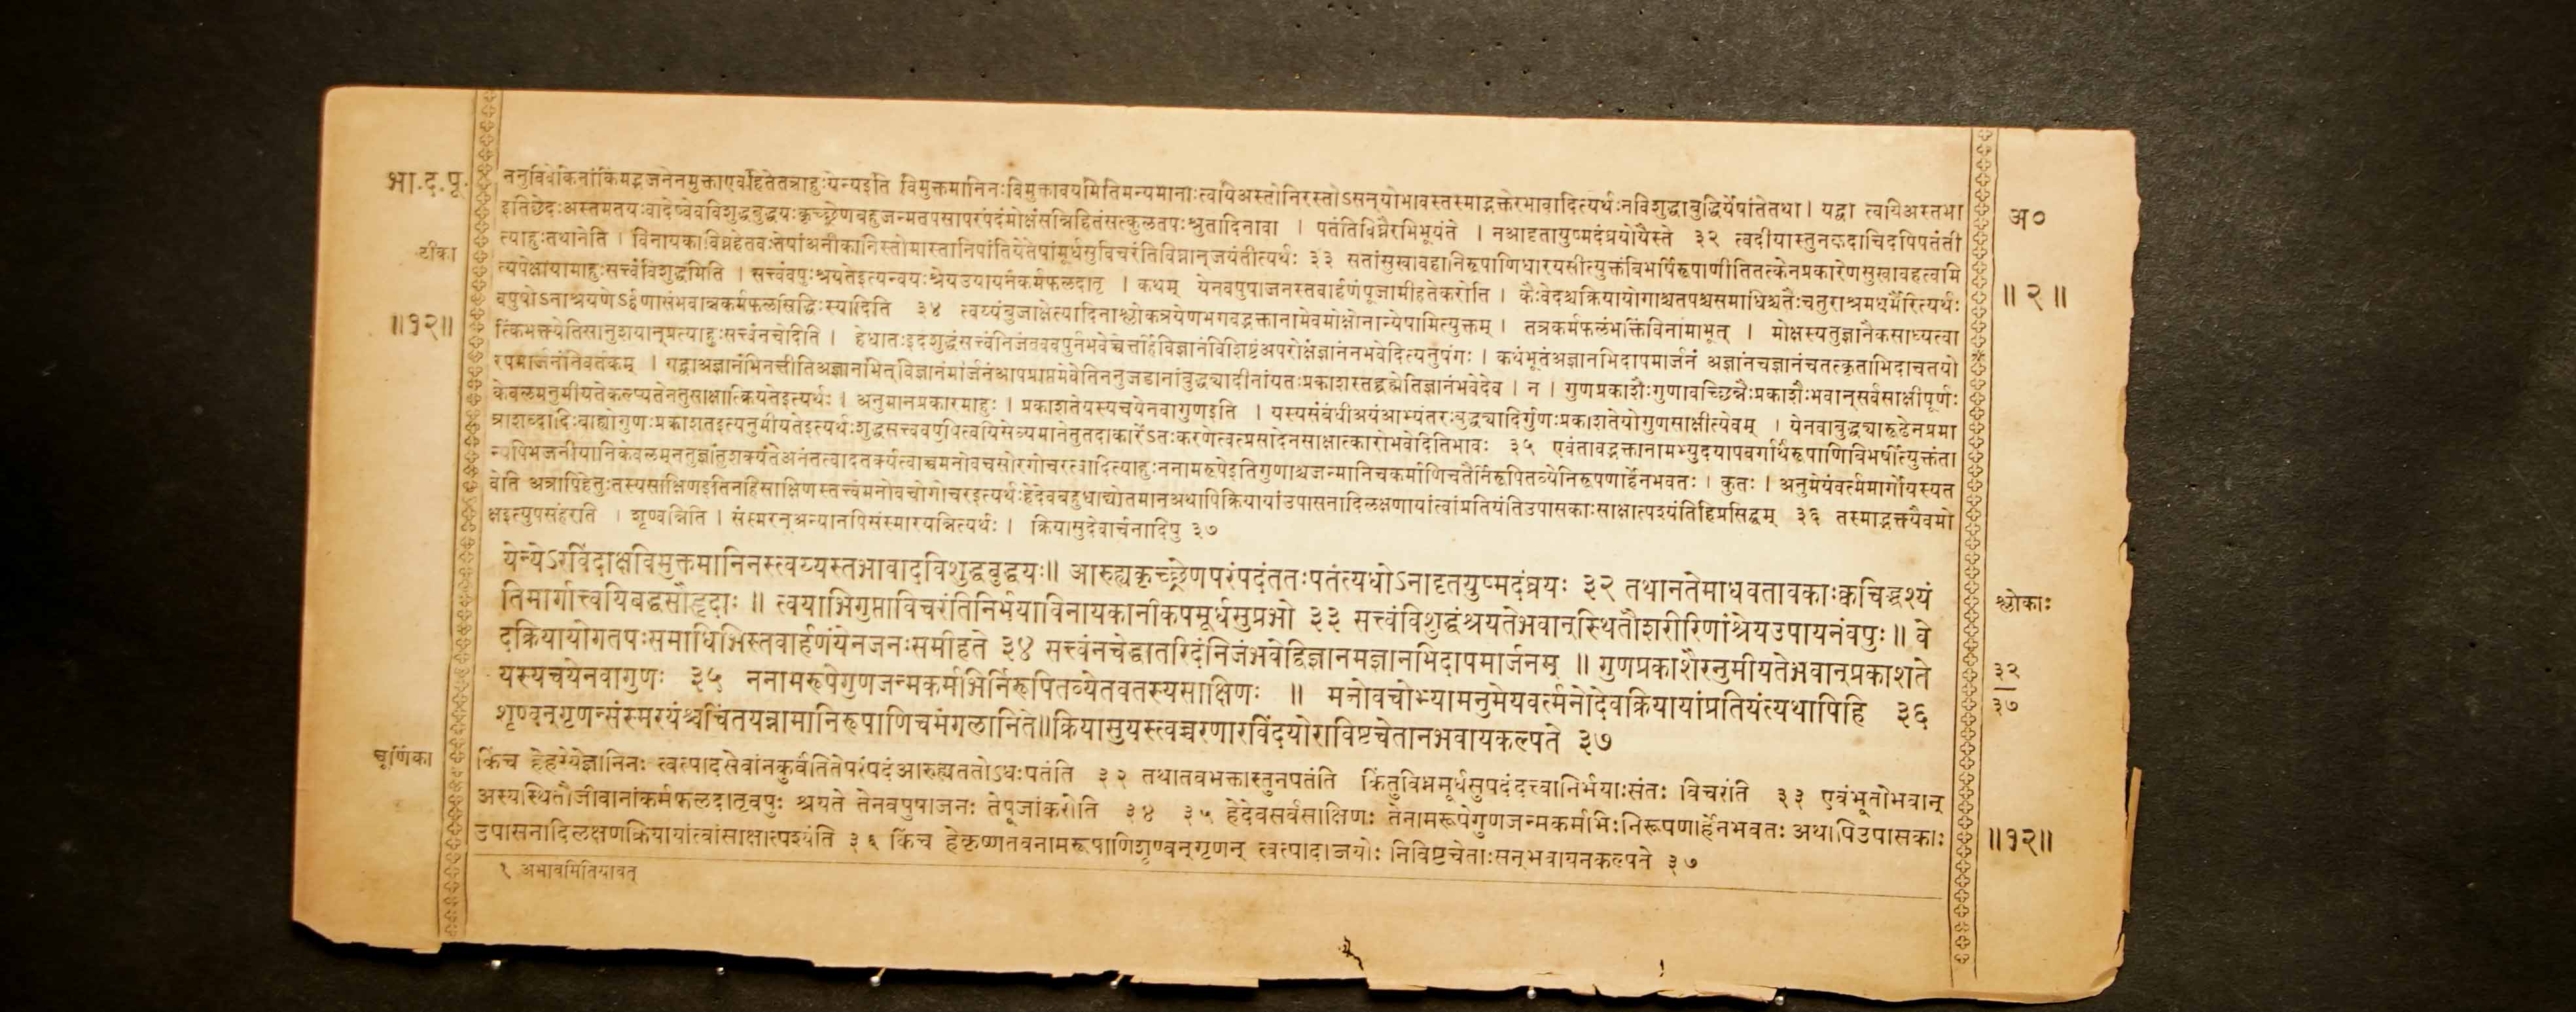 भा.द.पू.
टीका
॥१२॥
ननुविवेकिनांकिंमद्भजनेनमुक्ताएवहितेतत्राहुःयेन्यइति विमुक्तमानिनःविमुक्तावयमितिमन्यमानाःत्वयिअस्तोनिरस्तोऽसन्योभावस्तस्माद्भक्तेरभावादित्यर्थःनविशुद्धाबुद्धिर्येषांतेतथा। यद्वा त्वयिअस्तभा
इतिछेदःअस्तमतयःवादेष्वेवविशुद्धबुद्धयःकृच्छ्रेणबहुजन्मतपसापरंपदंमोक्षंसन्निहितंसत्कुलतपःश्रुतादिनावा । पतंतिविघ्नैरभिभूयंते । नआदृतायुष्मदंघ्रयोयैस्ते ३२ त्वदीयास्तुनकदाचिदपिपतंती
त्याहुःतथानेति । विनायकाविघ्नहेतवःतेषांअनीकानिस्तोमास्तानिपांतियेतेषांमूर्धसुविचरंतिविघ्नान्जयंतीत्यर्थः ३३ सतांसुखावहानिरूपाणिधारयसीत्युक्तंबिभर्षिरूपाणीतितत्केनप्रकारेणसुखावहत्वमि
त्यपेक्षायामाहुःसत्त्वंविशुद्धमिति । सत्त्वंवपुःश्रयतेइत्यन्वयःश्रेयउपायनंकर्मफलदातृ । कथम् येनवपुषाजनस्तवार्हणंपूजामीहतेकरोति । कैःवेदश्चक्रियायोगाश्चतपश्चसमाधिश्चतैःचतुराश्रमधर्मैरित्यर्थः
वपुषोऽनाश्रयणेऽर्हणासंभवान्नकर्मफलसिद्धिःस्यादिति ३४ त्वय्यंबुजाक्षेत्यादिनाश्लोकत्रयेणभगवद्भक्तानामेवमोक्षोनान्येषामित्युक्तम् । तत्रकर्मफलंभक्तिंविनामाभूत् । मोक्षस्यतुज्ञानैकसाध्यत्वा
त्किंभक्त्येतिसानुशयान्प्रत्याहुःसत्त्वंनचेदिति । हेधातःइदंशुद्धंसत्त्वंनिजंतववपुर्नभवेच्चेत्तर्हिविज्ञानंविशिष्टंअपरोक्षंज्ञानंनभवेदित्यनुषंगः । कथंभूतंअज्ञानभिदापमार्जनं अज्ञानंचज्ञानंचतत्कृताभिदाचतयो
रपमार्जनंनिवर्तकम् । यद्वाअज्ञानंभिनत्तीतिअज्ञानभित्विज्ञानंमार्जनंआपप्राप्तमेवेतिननुजडानांबुद्ध्यादीनांयतःप्रकाशस्तद्ब्रह्मेतिज्ञानंभवेदेव । न । गुणप्रकाशैःगुणावच्छिन्नैःप्रकाशैःभवान्सर्वसाक्षीपूर्णः
केवलमनुमीयतेकल्प्यतेनतुसाक्षात्क्रियतेइत्यर्थः । अनुमानप्रकारमाहुः । प्रकाशतेयस्यचयेनवागुणइति । यस्यसंबंधीअयंआभ्यंतरःबुद्ध्यादिर्गुणःप्रकाशतेयोगुणसाक्षीत्येवम् । येनवाबुद्ध्यारूढेनप्रमा
त्राशब्दादिःबाह्योगुणःप्रकाशतइत्यनुमीयतेइत्यर्थःशुद्धसत्त्ववपुषित्वयिसेव्यमानेतुतदाकारेंऽतःकरणेत्वत्प्रसादेनसाक्षात्कारोभवेदितिभावः ३५ एवंतावद्भक्तानामभ्युदयापवर्गार्थंरूपाणिबिभर्षीत्युक्तंता
न्यपिभजनीयानिकेवलम्नतुज्ञातुंशक्यंतेअनंतत्वादतर्क्यत्वाच्चमनोवचसोरगोचरत्वादित्याहुःननामरूपेइतिगुणाश्चजन्मानिचकर्माणिचतैर्निरूपितव्येनिरूपणार्हेनभवतः । कुतः । अनुमेयंवर्त्ममार्गोयस्यत
वेति अत्रापिहेतुःतस्यसाक्षिणइतिनहिसाक्षिणस्तत्त्वंमनोवचोगोचरइत्यर्थःहेदेवबहुधाद्योतमानअथापिक्रियायांउपासनादिलक्षणायांत्वांप्रतियंतिउपासकाःसाक्षात्पश्यंतिहिप्रसिद्धम् ३६ तस्माद्भक्त्यैवमो
क्षइत्युपसंहरति । शृण्वन्निति । संस्मरन्अन्यानपिसंस्मारयन्नित्यर्थः । क्रियासुदेवार्चनादिषु ३७
येन्येऽरविंदाक्षविमुक्तमानिनस्त्वय्यस्तभावादविशुद्धबुद्धयः॥ आरुह्यकृच्छ्रेणपरंपदंततःपतंत्यधोऽनादृतयुष्मदंघ्रयः ३२ तथानतेमाधवतावकाःक्वचिद्भ्रश्यं
तिमार्गात्त्वयिबद्धसौहृदाः ॥ त्वयाभिगुप्ताविचरंतिनिर्भयाविनायकानीकपमूर्धसुप्रभो ३३ सत्त्वंविशुद्धंश्रयतेभवान्स्थितौशरीरिणांश्रेयउपायनंवपुः॥ वे
दक्रियायोगतपःसमाधिभिस्तवार्हणंयेनजनःसमीहते ३४ सत्त्वंनचेद्धातरिदंनिजंभवेद्विज्ञानमज्ञानभिदापमार्जनम् ॥ गुणप्रकाशैरनुमीयतेभवान्प्रकाशते
यस्यचयेनवागुणः ३५ ननामरूपेगुणजन्मकर्मभिर्निरूपितव्येतवतस्यसाक्षिणः ॥ मनोवचोभ्यामनुमेयवर्त्मनोदेवक्रियायांप्रतियंत्यथापिहि ३६
शृण्वन्गृणन्संस्मरयंश्चचिंतयन्नामानिरूपाणिचमंगलानिते॥क्रियासुयस्त्वच्चरणारविंदयोराविष्टचेतानभवायकल्पते ३७
चूर्णिका
किंच हेहरेयेज्ञानिनः त्वत्पादसेवांनकुर्वंतितेपरंपदंआरुह्यततोऽधःपतंति ३२ तथातवभक्तास्तुनपतंति किंतुविघ्नमूर्धसुपदंदत्त्वानिर्भयाःसंतः विचरंति ३३ एवंभूतोभवान्
अस्यस्थितौजीवानांकर्मफलदातृवपुः श्रयते तेनवपुषाजनः तेपूजांकरोति ३४ ३५ हेदेवसर्वसाक्षिणः तेनामरूपेगुणजन्मकर्मभिःनिरूपणार्हेनभवतः अथापिउपासकाः
उपासनादिलक्षणक्रियायांत्वांसाक्षात्पश्यंति ३६ किंच हेकृष्णतवनामरूपाणिशृण्वन्गृणन् त्वत्पादाब्जयोः निविष्टचेताःसन्भवायनकल्पते ३७
१ अभावमितियावत्
अ०
॥२॥
श्लोकाः
३२
३७
॥१२॥